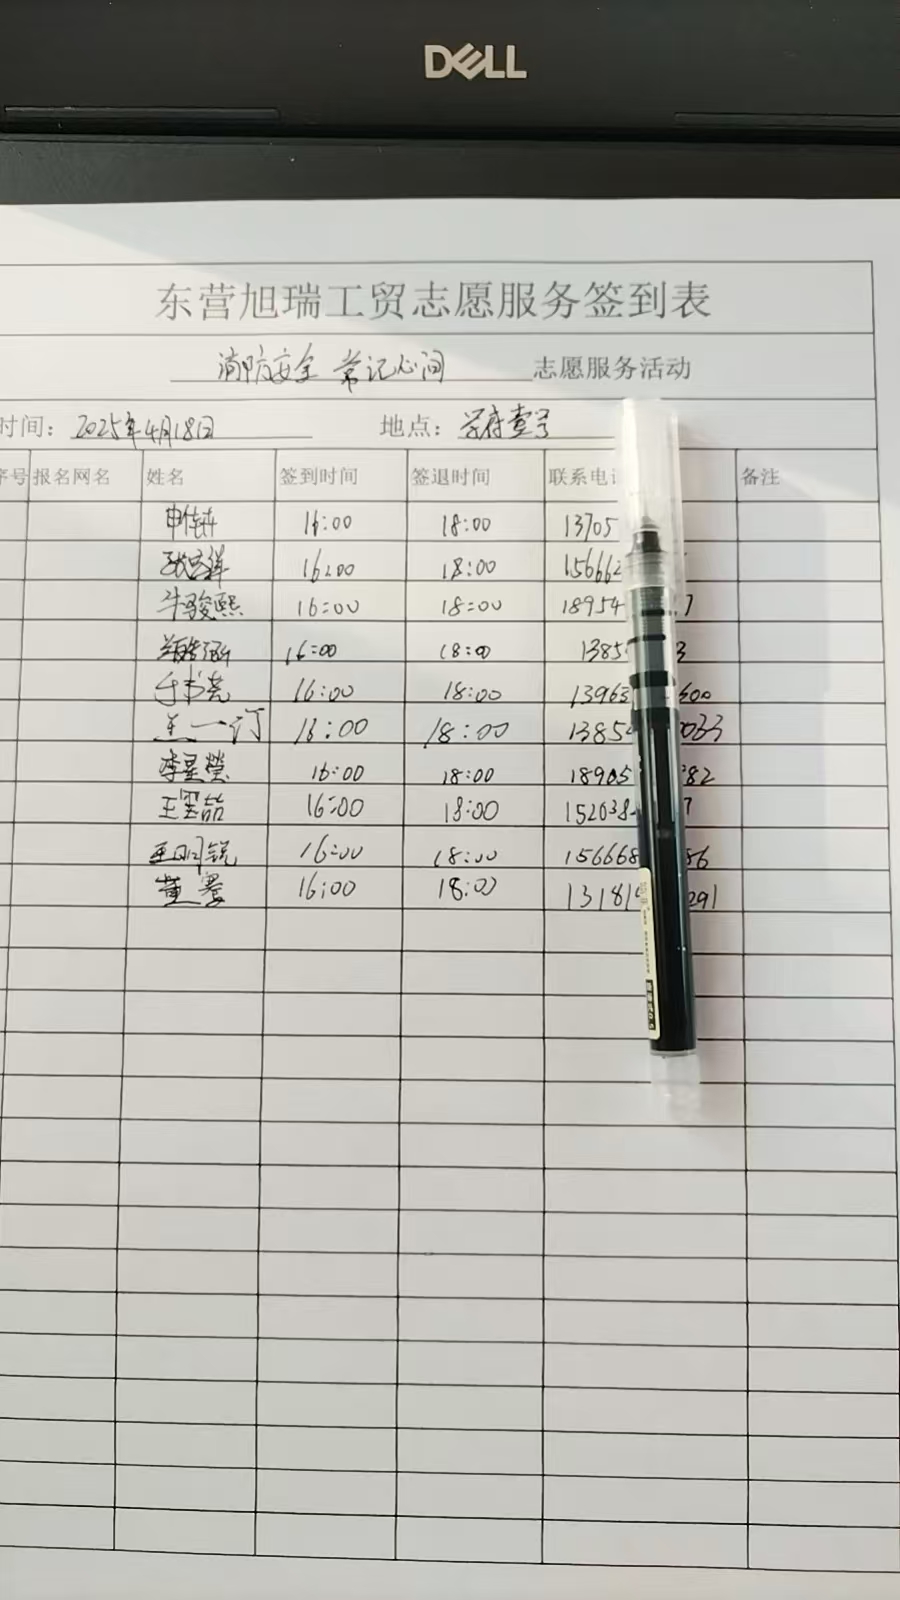 DELL
东营旭瑞工贸志愿服务签到表
消防安全 常记心间 志愿服务活动
时间: 2025年4月18日 地点: 学府壹号
序号 报名网名 姓名 签到时间 签退时间 联系电话 备注
16:00 18:00 13705
16:00 18:00 15662
牛骏熙 16:00 18:00 18954 7
16:00 18:00 1385 3
于书尧 16:00 18:00 13963 600
王一订 16:00 18:00 1385 033
李星莹 16:00 18:00 18905 82
王墨喆 16:00 18:00 152038 7
王明锐 16:00 18:00 156668 86
16:00 18:00 13181 291